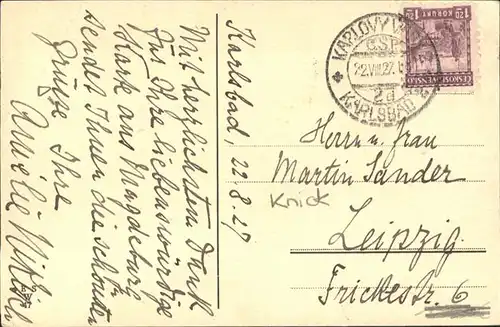 Karlsbad, 22.8.27
Mit herrlichstem Dank
für Ihre liebenswürdige
Karte aus Magdeburg
sendet Ihnen die schönsten
Grüsse Ihre
KARLOVY
Č.S.P.
22.VIII.27
2d
KARLSBAD
1.20 KORUNY 1.20
ČESKOSLOVENSKO
Herrn u. Frau
Martin Sander
Knick
Leipzig.
Frickestr. 6